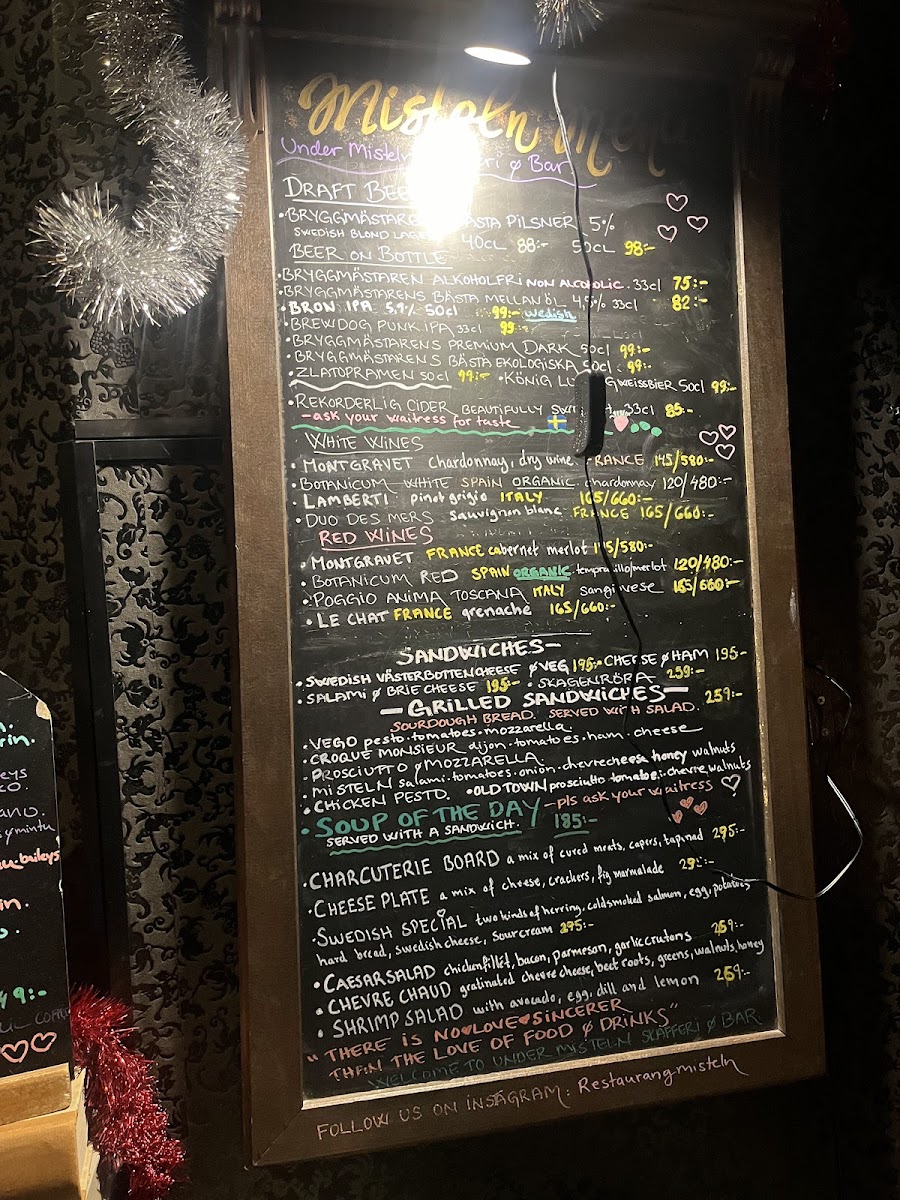 Misteln Menu
Under Misteln Bar
DRAFT BEER
• BRYGGMÄSTARENS BÄSTA PILSNER 5%
SWEDISH BLOND LAGER 40CL 88:- 50CL 98:-
BEER ON BOTTLE
• BRYGGMÄSTAREN ALKOHOLFRI NON ALCOHOLIC. 33cl 75:-
• BRYGGMÄSTARENS BÄSTA MELLANÖL 4,5% 33cl 82:-
• BRON IPA 5,9% 50cl 99:-
• BREWDOG PUNK IPA 33cl 99:-
• BRYGGMÄSTARENS PREMIUM DARK 50cl 99:-
• BRYGGMÄSTARENS BÄSTA EKOLOGISKA 50cl. 99:-
• ZLATOPRAMEN 50cl 99:- • KÖNIG WEISSBIER 50cl 99:-
• REKORDERLIG CIDER BEAUTIFULLY 33cl 85:-
- ask your waitress for taste
WHITE WINES
• MONTGRAVET chardonnay, dry wine. FRANCE 145/580:-
• BOTANICUM WHITE SPAIN ORGANIC chardonnay 120/480:-
• LAMBERTI pinot grigio ITALY 165/660:-
• DUO DES MERS sauvignon blanc FRANCE 165/660:-
RED WINES
• MONTGRAVET FRANCE cabernet merlot 145/580:-
• BOTANICUM RED SPAIN ORGANIC. tempranillo/merlot 120/480:-
• POGGIO ANIMA TOSCANA ITALY sangiovese 165/660:-
• LE CHAT FRANCE grenache 165/660:-
SANDWICHES-
• SWEDISH VÄSTERBOTTENCHEESE & VEG 195:- CHEESE & HAM 195-
• SALAMI & BRIE CHEESE 195:- • SKAGENRÖRA 259:-
- GRILLED SANDWICHES - 259:-
SOURDOUGH BREAD. SERVED WITH SALAD.
• VEGO pesto.tomatoes.mozzarella.
• CROQUE MONSIEUR dijon.tomatoes.ham.cheese
• PROSCIUTTO & MOZZARELLA.
• MISTELN salami.tomatoes.onion.chevrecheese honey walnuts
• CHICKEN PESTO. • OLD TOWN prosciutto tomatoes.chevre.walnuts
• SOUP OF THE DAY - pls ask your waitress
SERVED WITH A SANDWICH. 185:-
• CHARCUTERIE BOARD a mix of cured meats, capers, tapinad 295:-
• CHEESE PLATE a mix of cheese, crackers, fig marmalade
• SWEDISH SPECIAL two kinds of herring, coldsmoked salmon, egg, potatoes
hard bread, swedish cheese, sourcream 295:-
• CAESARSALAD chickenfillét, bacon, parmeson, garlic crutons 259:-
• CHEVRE CHAUD gratinated chevre cheese, beet roots, greens, walnuts, honey
• SHRIMP SALAD with avocado, egg, dill and lemon 259:-
"THERE IS NO LOVE SINCERER
THAN THE LOVE OF FOOD & DRINKS"
WELCOME TO UNDER MISTELN SKAFFERI & BAR.
FOLLOW US ON INSTAGRAM: Restaurangmisteln